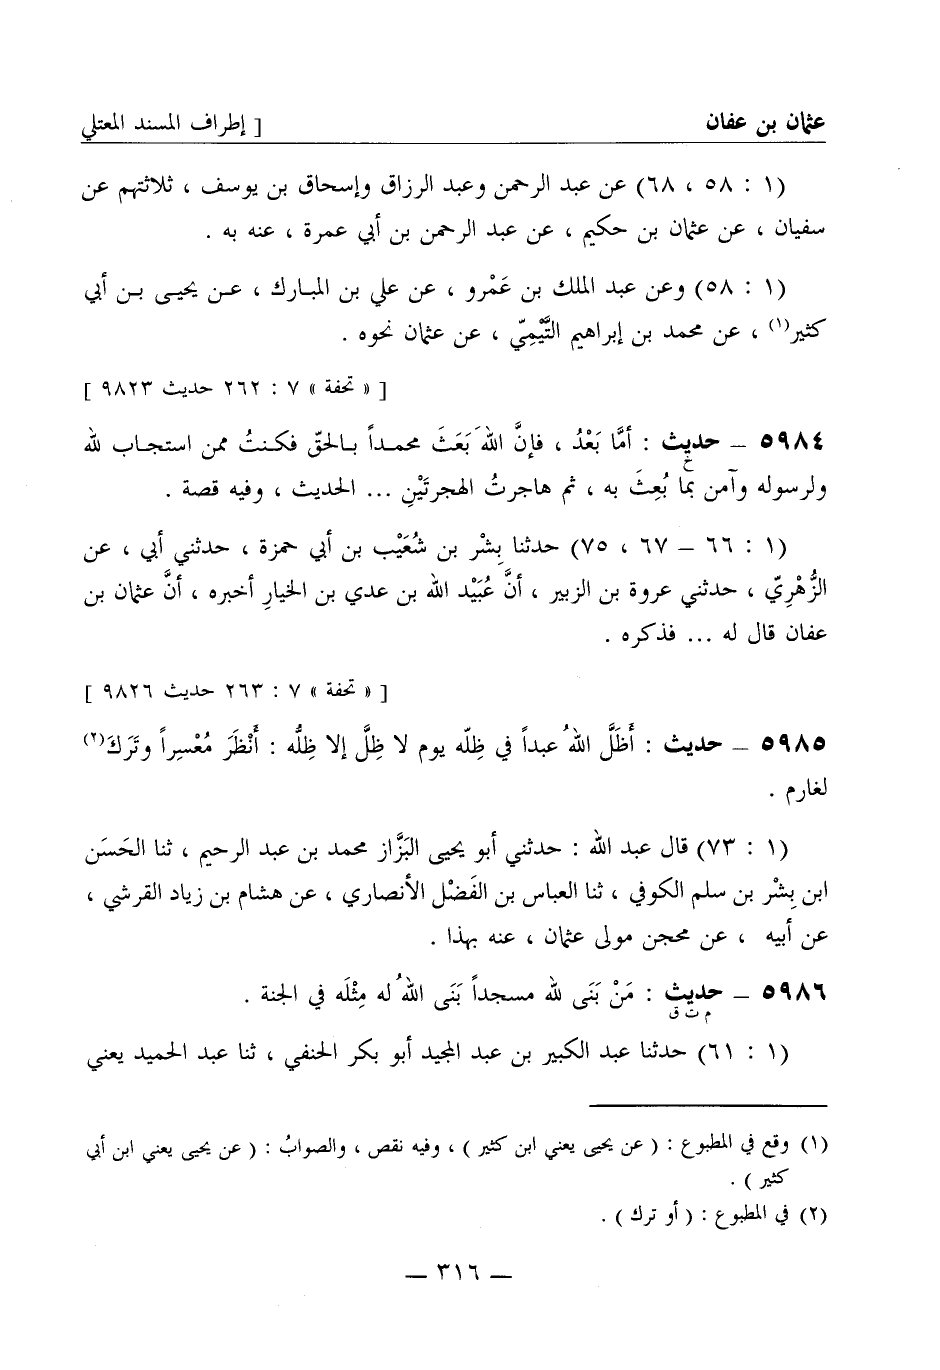 عثمان بن عفان [ إطراف المسند المعتلي
(١ : ٥٨ ، ٦٨) عن عبد الرحمن وعبد الرزاق وإسحاق بن يوسف ، ثلاثتهم عن
سفيان ، عن عثمان بن حكيم ، عن عبد الرحمن بن أبي عمرة ، عنه به .
(١ : ٥٨) وعن عبد الملك بن عَمْرو ، عن علي بن المبارك ، عن يحيى بن أبي
كثير(١) ، عن محمد بن إبراهيم التَّيْمِيّ ، عن عثمان نحوه .
[ « تحفة » ٧ : ٢٦٢ حديث ٩٨٢٣ ]
٥٩٨٤ – حديث : أمَّا بَعْدُ ، فإنَّ اللهَ بَعَثَ محمداً بالحقّ فكنتُ ممن استجاب لله
خ
ولرسوله وآمن بما بُعِثَ به ، ثم هاجرتُ الهجرتَيْنِ ... الحديث ، وفيه قصة .
(١ : ٦٦ – ٦٧ ، ٧٥) حدثنا بِشْر بن شُعَيْب بن أبي حمزة ، حدثني أبي ، عن
الزُّهْرِيّ ، حدثني عروة بن الزبير ، أنَّ عُبَيْد الله بن عدي بن الخيارِ أخبره ، أنَّ عثمان بن
عفان قال له ... فذكره .
[ « تحفة » ٧ : ٢٦٣ حديث ٩٨٢٦ ]
٥٩٨٥ – حديث : أَظَلَّ اللهُ عبداً في ظِلّه يوم لا ظِلَّ إلا ظِلُّه : أَنْظَرَ مُعْسِراً وتَرَكَ(٢)
لغارم .
(١ : ٧٣) قال عبد الله : حدثني أبو يحيى البَزَّاز محمد بن عبد الرحيم ، ثنا الحَسَن
ابن بِشْر بن سلم الكوفي ، ثنا العباس بن الفَضْل الأنصاري ، عن هشام بن زياد القرشي ،
عن أبيه ، عن محجن مولى عثمان ، عنه بهذا .
٥٩٨٦ – حديث : مَنْ بَنَى لله مسجداً بَنَى اللهُ له مِثْلَه في الجنة .
م ت ق
(١ : ٦١) حدثنا عبد الكبير بن عبد المجيد أبو بكر الحنفي ، ثنا عبد الحميد يعني
(١) وقع في المطبوع : ( عن يحيى يعني ابن كثير ) ، وفيه نقص ، والصوابُ : ( عن يحيى يعني ابن أبي
كثير ) .
(٢) في المطبوع : ( أو ترك ) .
– ٣١٦ –